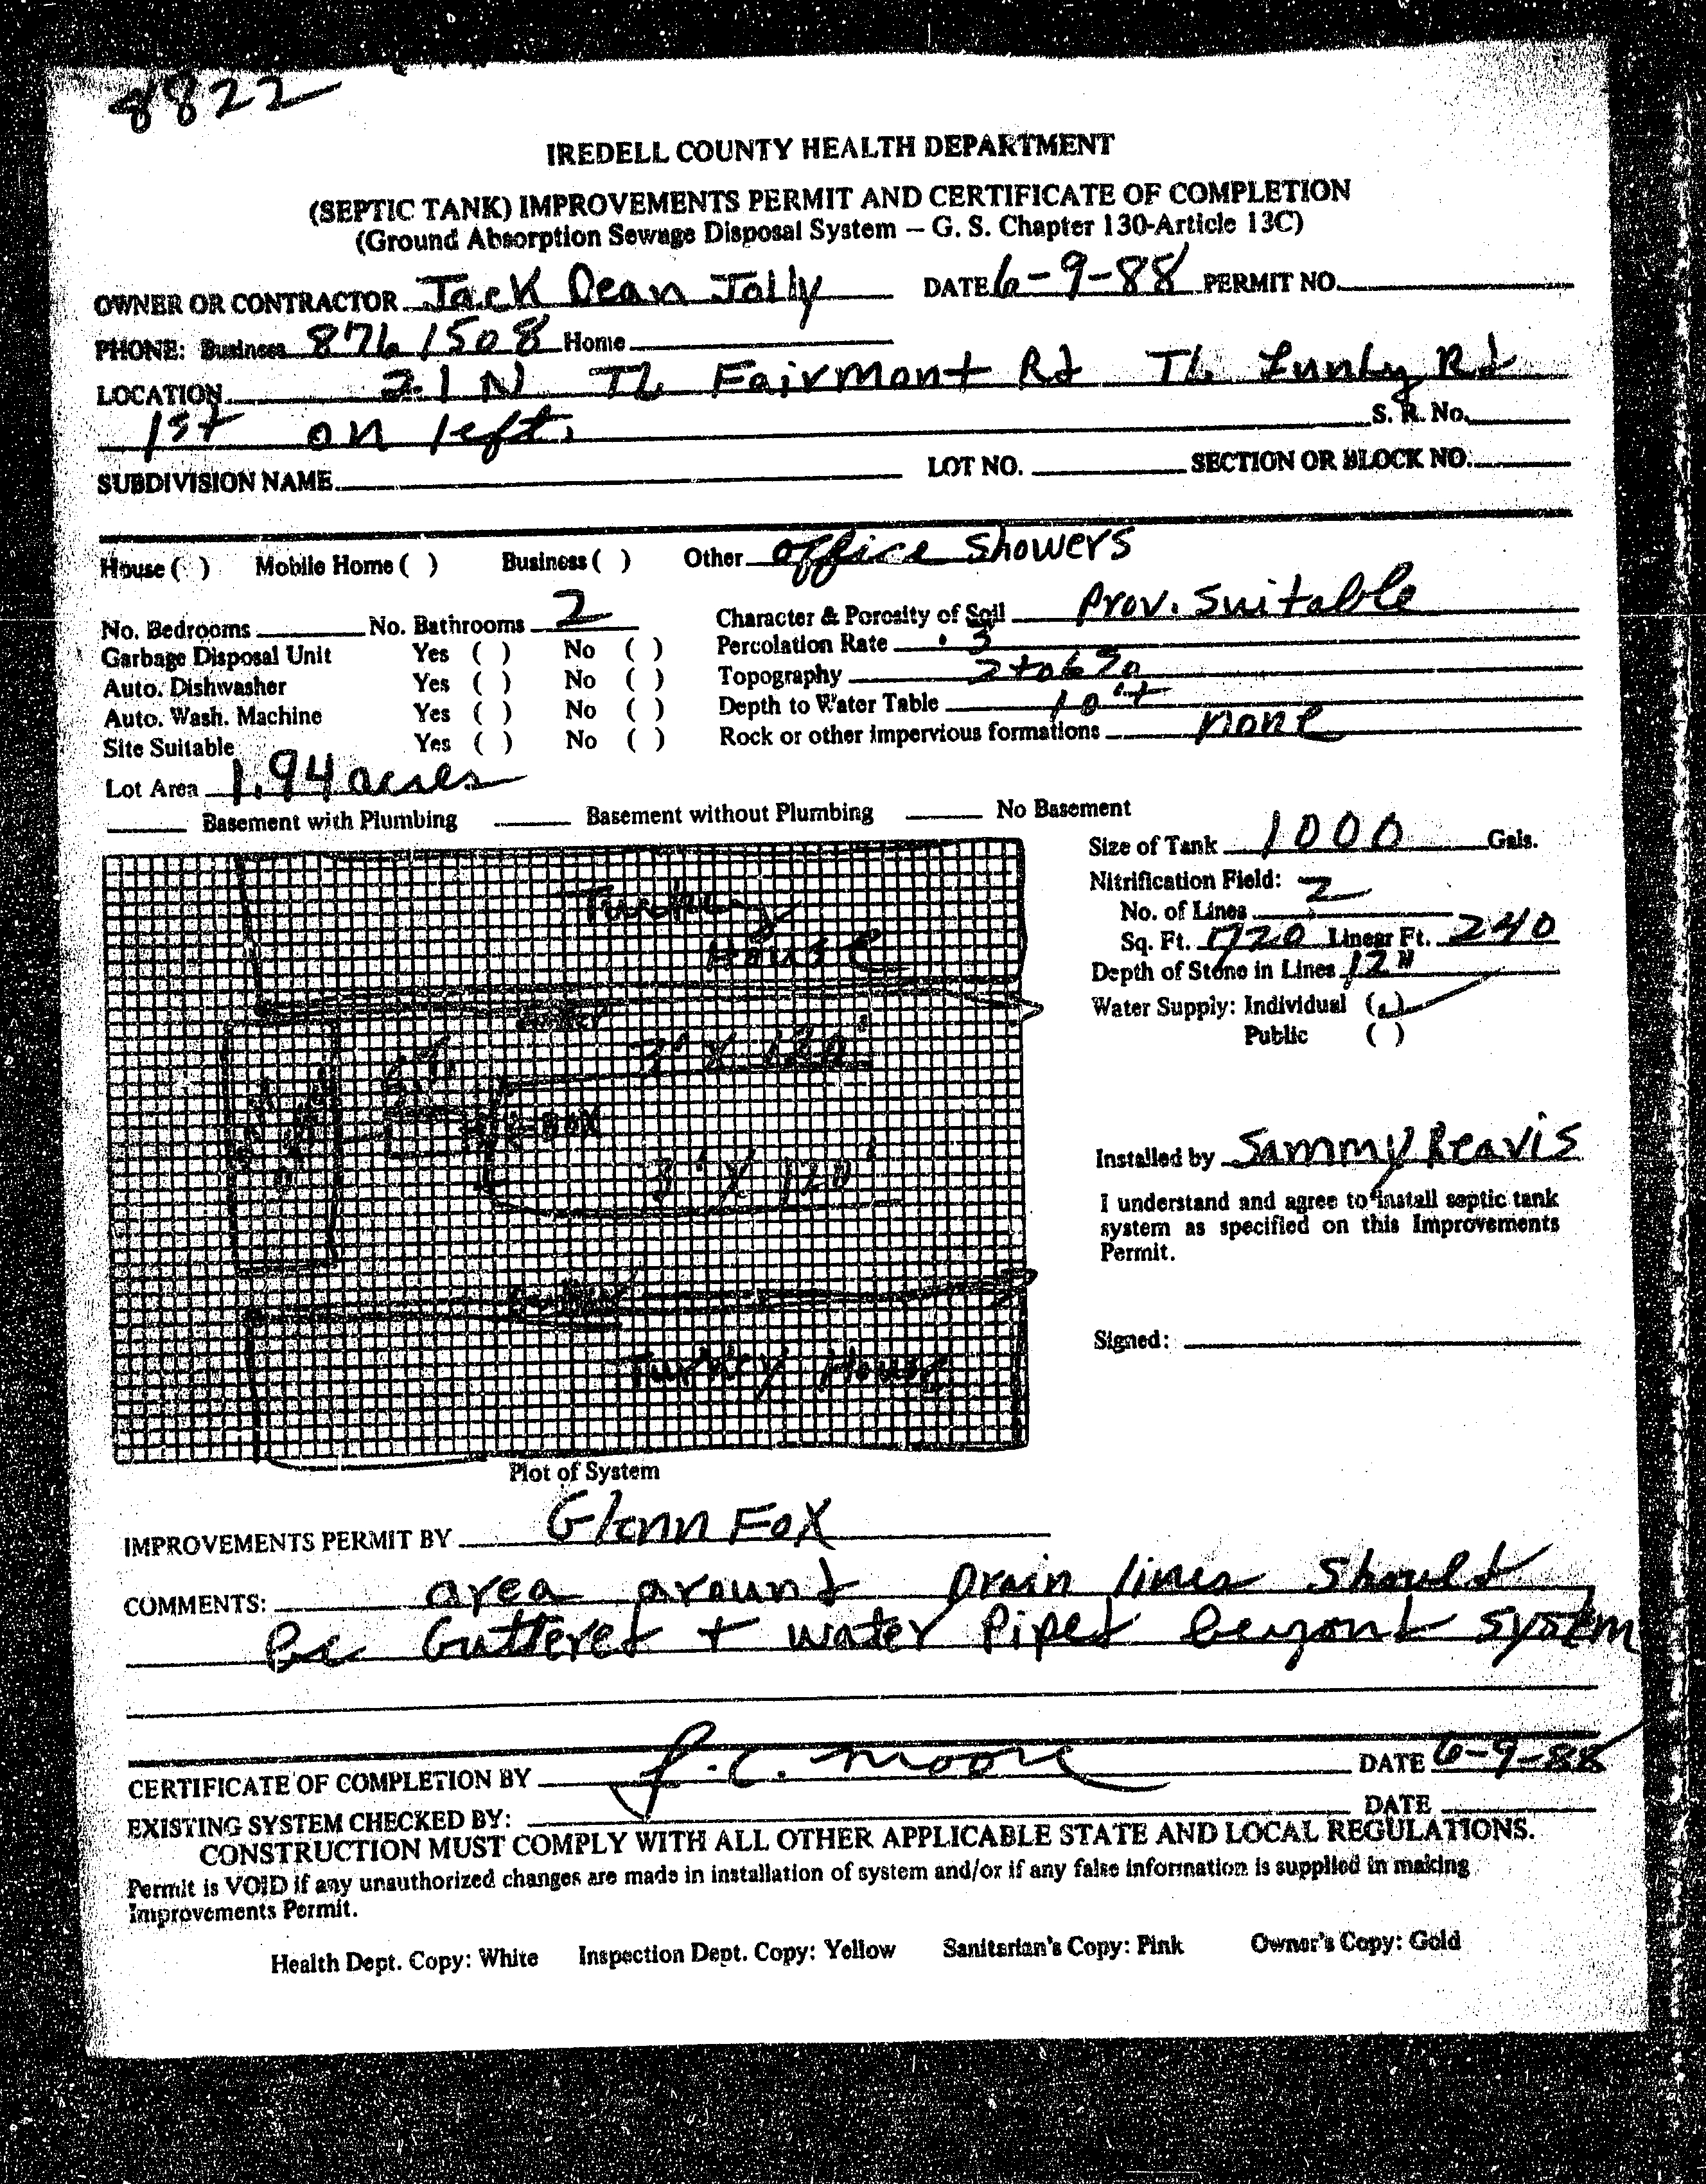 8822
IREDELL COUNTY HEALTH DEPARTMENT
(SEPTIC TANK) IMPROVEMENTS PERMIT AND CERTIFICATE OF COMPLETION
(Ground Absorption Sewage Disposal System – G. S. Chapter 130-Article 13C)
OWNER OR CONTRACTOR Jack Dean Jolly DATE 6-9-88 PERMIT NO.
PHONE: Business 876 1508 Home
LOCATION 21 N TL Fairmont Rd TL Rd
1st on left. S. R. No.
SUBDIVISION NAME LOT NO. SECTION OR BLOCK NO.
House ( ) Mobile Home ( ) Business ( ) Other office showers
No. Bedrooms No. Bathrooms 2 Character & Porosity of Soil Prov. Suitable
Garbage Disposal Unit Yes ( ) No ( ) Percolation Rate .3
Auto. Dishwasher Yes ( ) No ( ) Topography 2 to 6 %
Auto. Wash. Machine Yes ( ) No ( ) Depth to Water Table 10'+
Site Suitable Yes ( ) No ( ) Rock or other impervious formations none
Lot Area 1.94 acres
Basement with Plumbing Basement without Plumbing No Basement
Size of Tank 1000 Gals.
Nitrification Field:
No. of Lines 2
Sq. Ft. 720 Linear Ft. 240
Depth of Stone in Lines 12"
Water Supply: Individual ( )
Public ( )
Turkey
House
3' X 120'
BOX
3' X 120'
Turkey House
Installed by Sammy Reavis
I understand and agree to install septic tank
system as specified on this Improvements
Permit.
Signed:
Plot of System
IMPROVEMENTS PERMIT BY Glenn Fox
COMMENTS: area around Drain lines should
be Guttered + water Piped beyond system
CERTIFICATE OF COMPLETION BY J. C. Moore DATE 6-9-88
EXISTING SYSTEM CHECKED BY: DATE
CONSTRUCTION MUST COMPLY WITH ALL OTHER APPLICABLE STATE AND LOCAL REGULATIONS.
Permit is VOID if any unauthorized changes are made in installation of system and/or if any false information is supplied in making
Improvements Permit.
Health Dept. Copy: White Inspection Dept. Copy: Yellow Sanitarian's Copy: Pink Owner's Copy: Gold